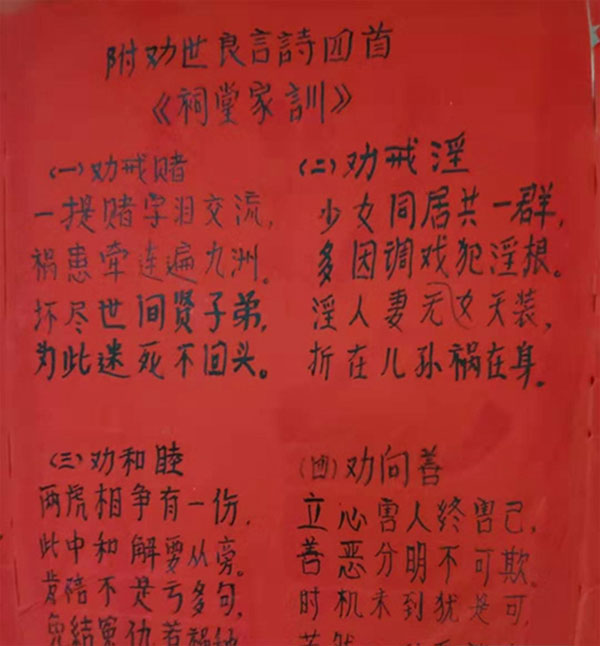 附劝世良言詩四首
《祠堂家訓》
(一)劝戒赌
一提赌字泪交流,
祸患牵连遍九洲。
坏尽世间贤子弟,
为此迷死不回头。
(二)劝戒淫
少女同居共一群,
多因调戏犯淫根。
淫人妻元女天装,
折在儿孙祸在身。
(三)劝和睦
两虎相争有一伤,
此中和解要从旁。
肯陪不是亏多句,
免結冤仇若祸
(四)劝向善
立心害人终害己,
善恶分明不可欺。
时机未到犹是可,